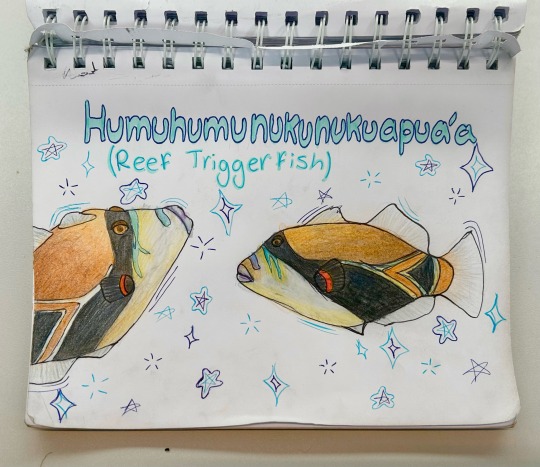 Humuhumunukunukuapua'a
(Reef Triggerfish)